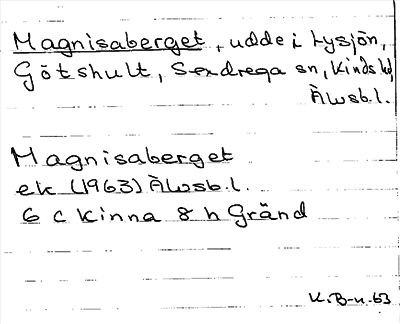 Magnisaberget, udde i Lysjön,
Götshult, Sexdrega sn, Kinds hd,
Älvsb.l.
Magnisaberget
ek (1963) Älvsb.l.
6 C Kinna 8 h Gränd
K.B-n.63